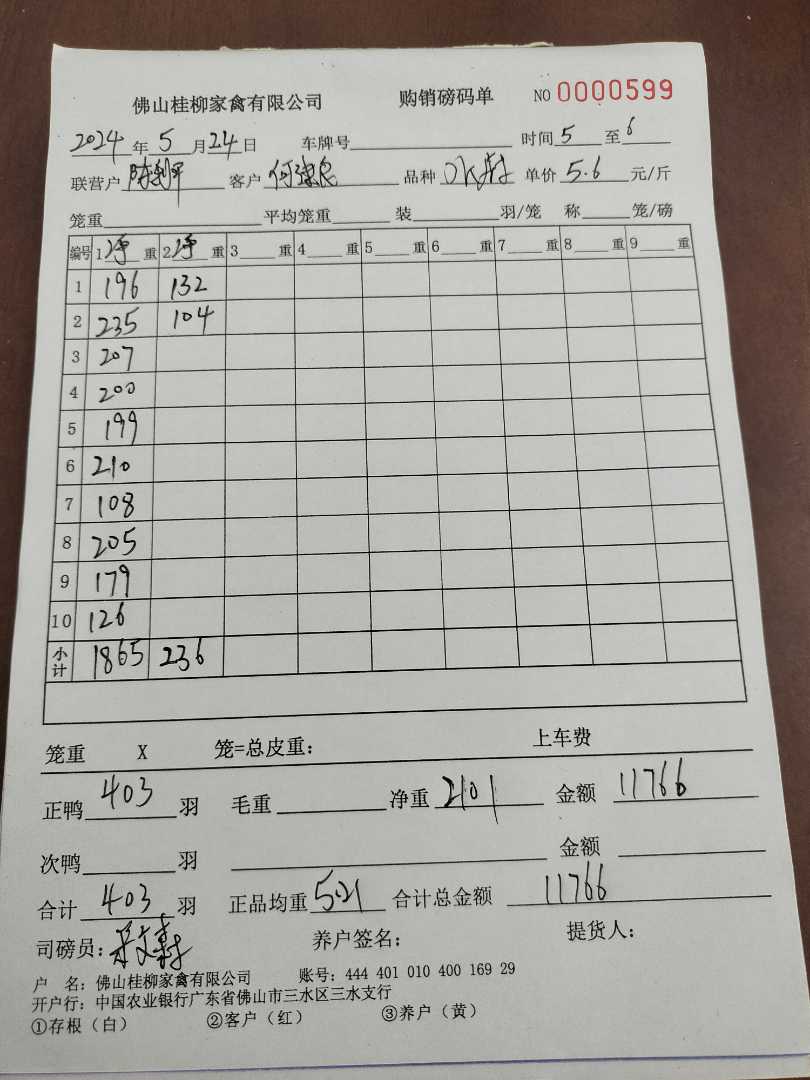 佛山桂柳家禽有限公司 购销磅码单 NO 0000599
2024 年 5 月 24 日 车牌号 时间 5 至 6
联营户 陈利平 客户 何建良 品种 水鸭 单价 5.6 元/斤
笼重 平均笼重 装 羽/笼 称 笼/磅
编号 1 净 重 2 净 重 3 重 4 重 5 重 6 重 7 重 8 重 9 重
1 196 132
2 235 104
3 207
4 200
5 199
6 210
7 108
8 205
9 179
10 126
小计 1865 236
笼重 X 笼=总皮重: 上车费
正鸭 403 羽 毛重 净重 2101 金额 11766
次鸭 羽 金额
合计 403 羽 正品均重 5.21 合计总金额 11766
司磅员: 养户签名: 提货人:
户 名: 佛山桂柳家禽有限公司 账号: 444 401 010 400 169 29
开户行: 中国农业银行广东省佛山市三水区三水支行
①存根（白） ②客户（红） ③养户（黄）